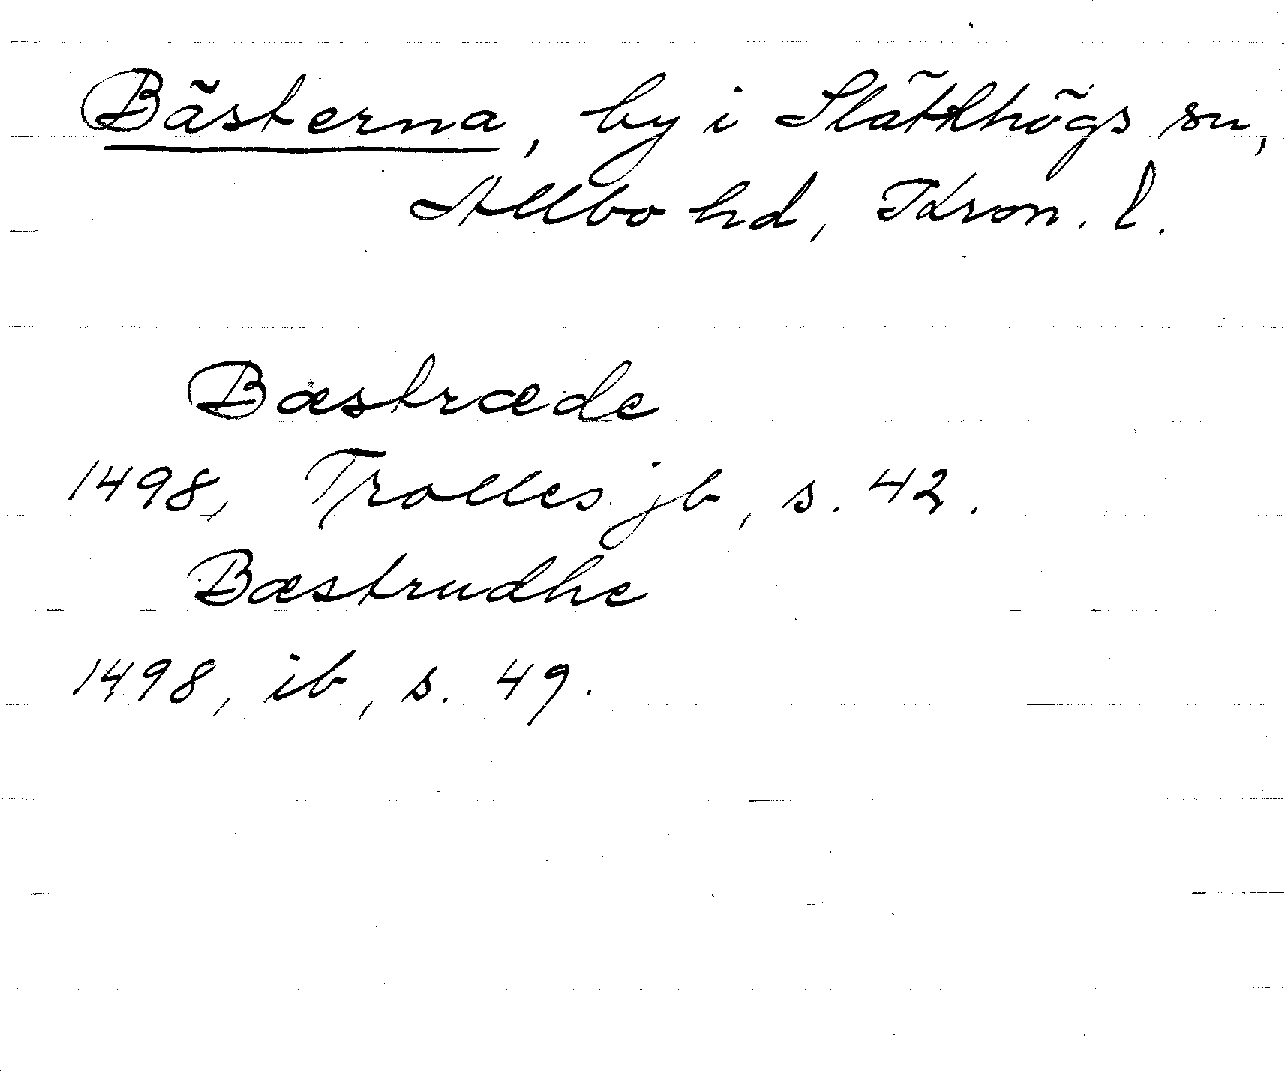 Bästerna, by i Slätthögs sn,
Allbo hd, Kron. l.
Bæstræde
1498, Trolles jb, s. 42.
Bæstrudhe
1498, ib, s. 49.